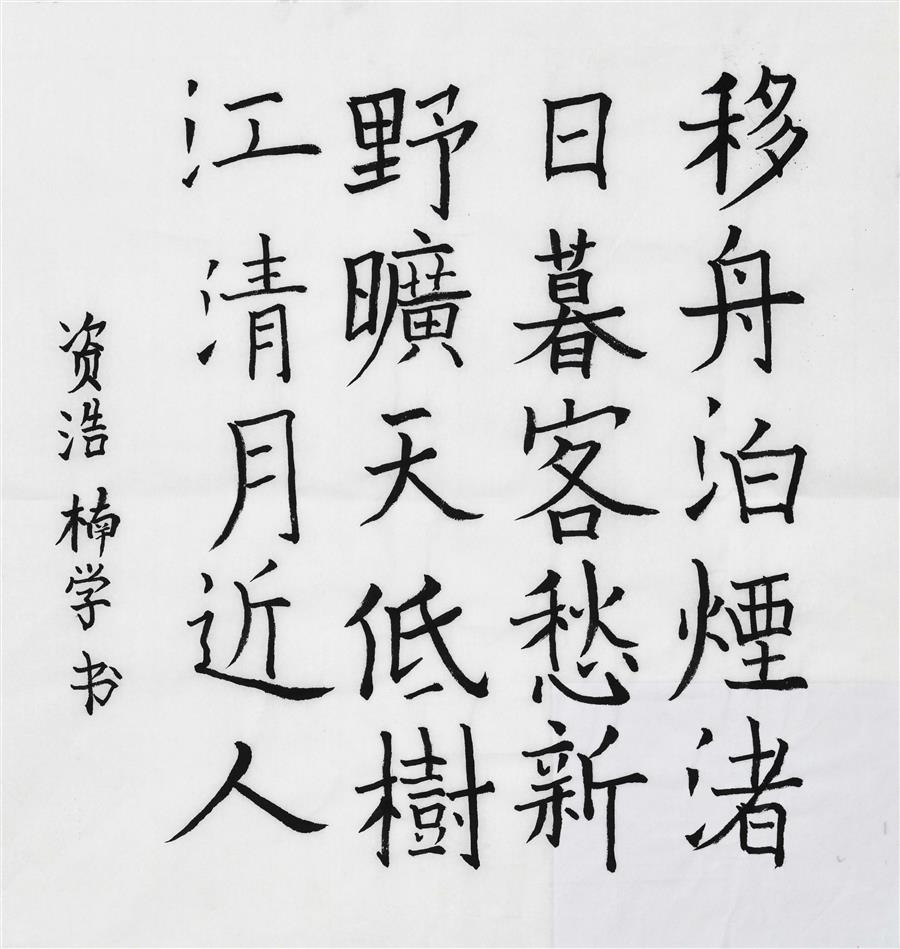 移舟泊煙渚
日暮客愁新
野曠天低樹
江清月近人
资浩楠学书